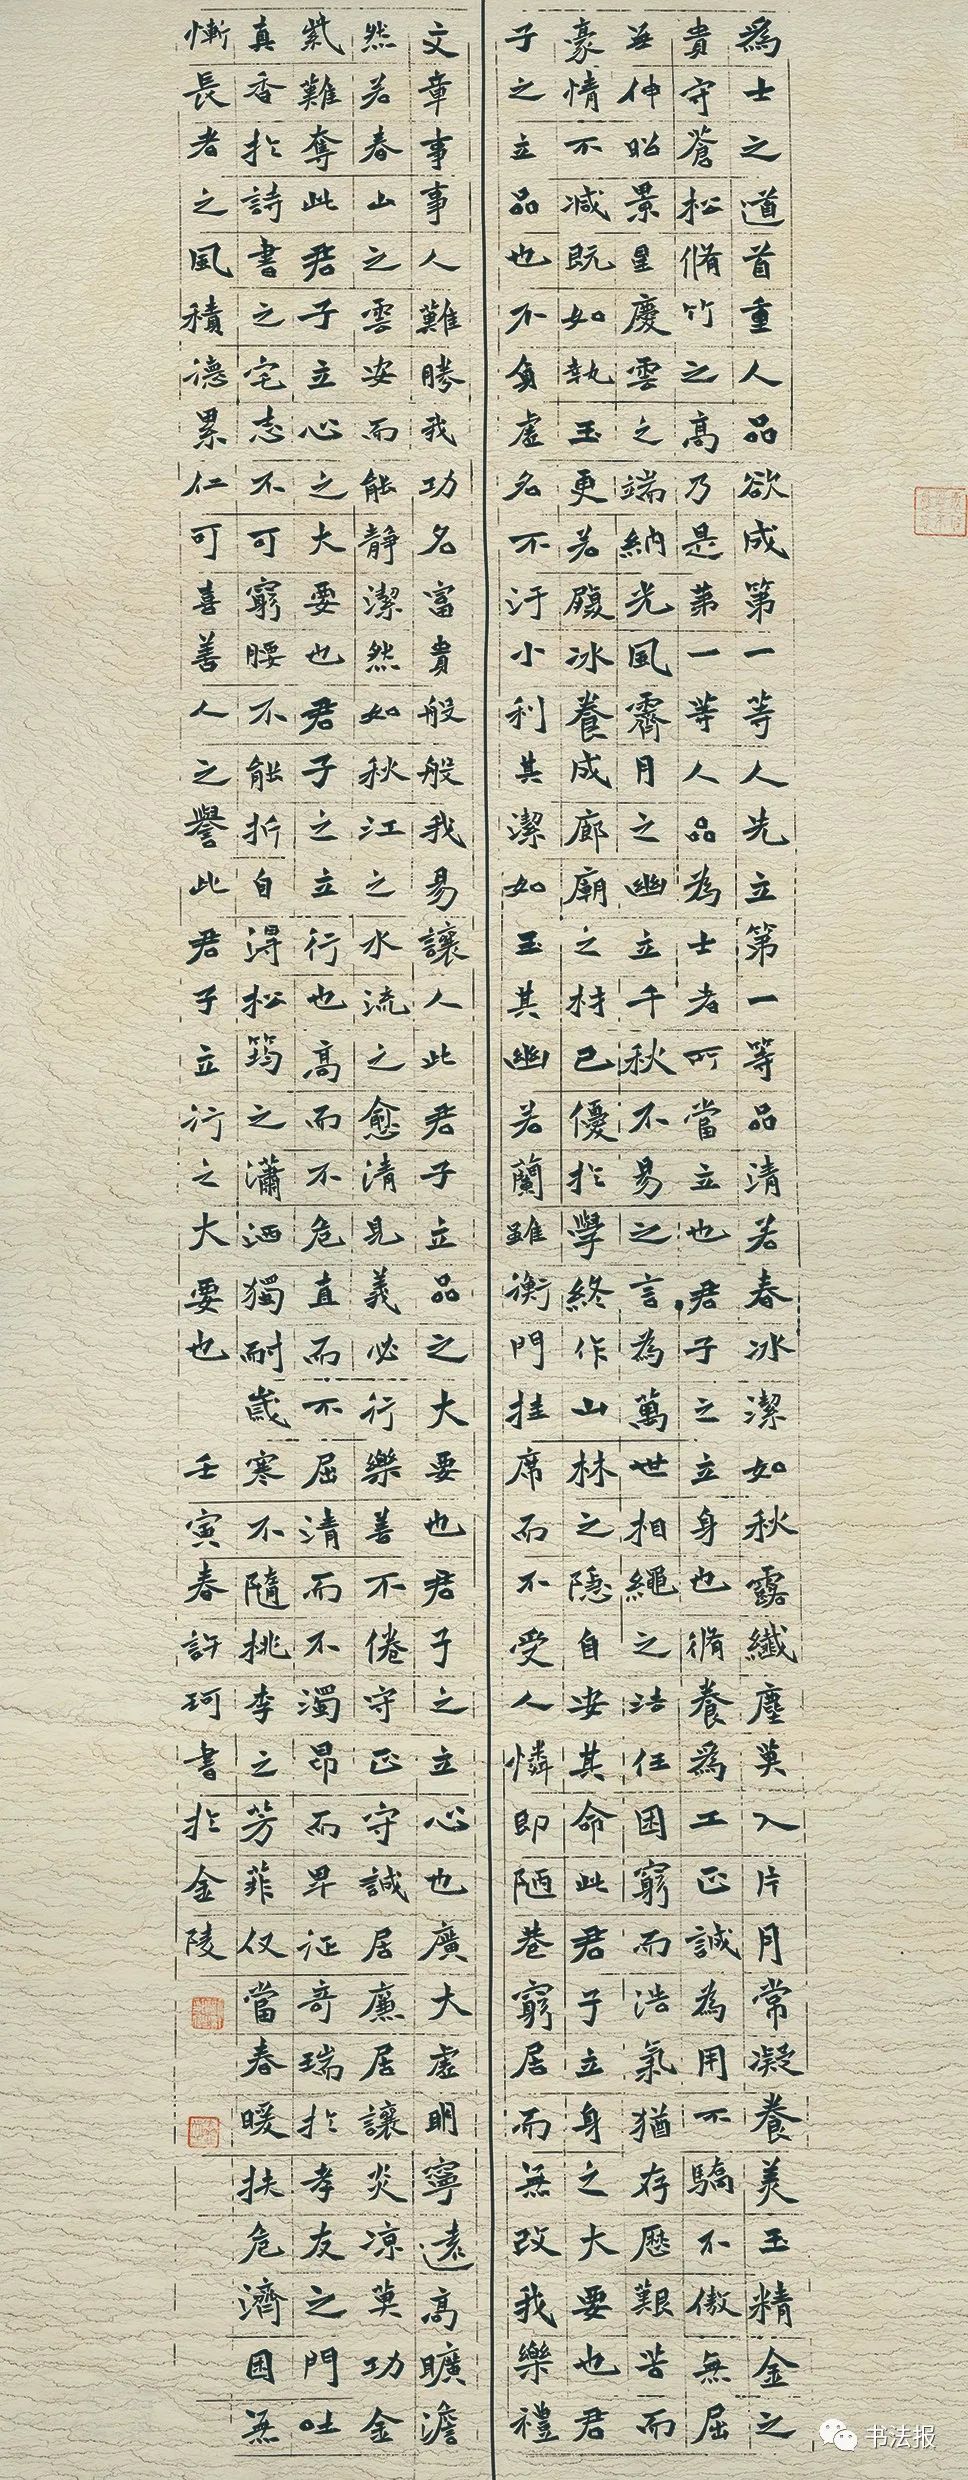 為士之道首重人品欲成第一等人先立第一等品清若春冰潔如秋露纖塵莫入片月常凝養美玉精金之
貴守蒼松脩竹之高乃是第一等人品為士者所當立也君子之立身也脩養為工正誠為用不驕不傲無屈
無伸昭景星慶雲之端納光風霽月之幽立千秋不易之言為萬世相繩之法任困窮而浩氣猶存歷艱苦而
豪情不減既如執玉更若履冰養成廊廟之材已優於學終作山林之隱自安其命此君子立身之大要也君
子之立品也不負虛名不汙小利其潔如玉其幽若蘭雖衡門挂席而不受人憐即陋巷窮居而無改我樂禮
文章事事人難勝我功名富貴般般我易讓人此君子立品之大要也君子之立心也廣大虛明寧遠高曠澹
然若春山之雲安而能靜潔然如秋江之水流之愈清見義必行樂善不倦守正守誠居廉居讓炎凉莫功金
紫難奪此君子立心之大要也君子之立行也高而不危直而不屈清而不濁昂而卑征奇瑞於孝友之門吐
真香於詩書之宅志不可窮腰不能折自得松筠之瀟洒獨耐歲寒不隨桃李之芳菲仅當春暖扶危濟困無
慚長者之風積德累仁可喜善人之譽此君子立行之大要也 壬寅春許珂書於金陵
书法报